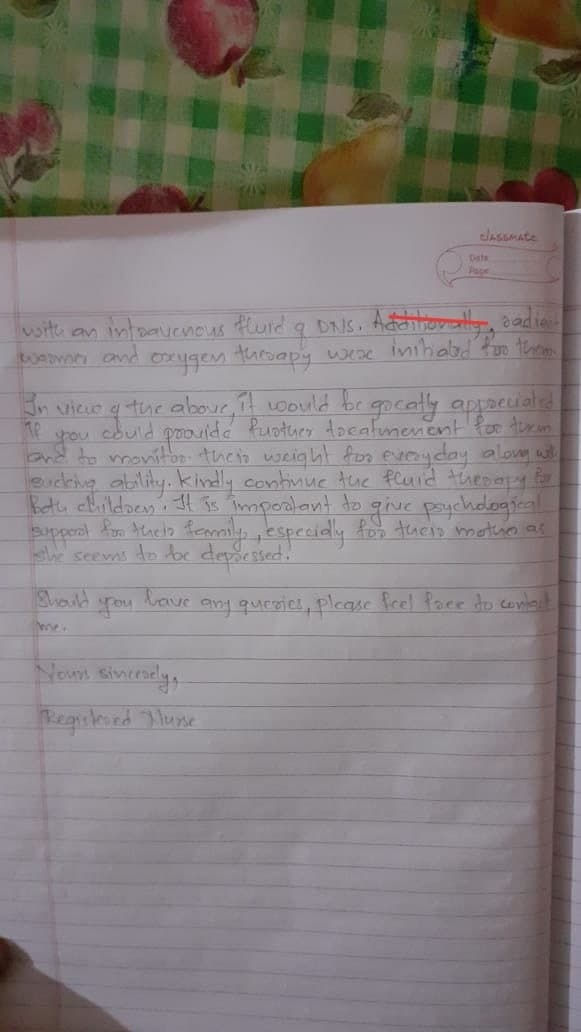 classmate
Date
Page
with an intravenous fluid of DNS. Additionally, radiant
warmer and oxygen therapy were initiated for them.
In view of the above, it would be greatly appreciated
if you could provide further treatment for them
and to monitor their weight for everyday along with
sucking ability. Kindly continue the fluid therapy for
both children. It is important to give psychological
support for their family, especially for their mother as
she seems to be depressed.
Should you have any queries, please feel free to contact
me.
Yours sincerely,
Registered Nurse